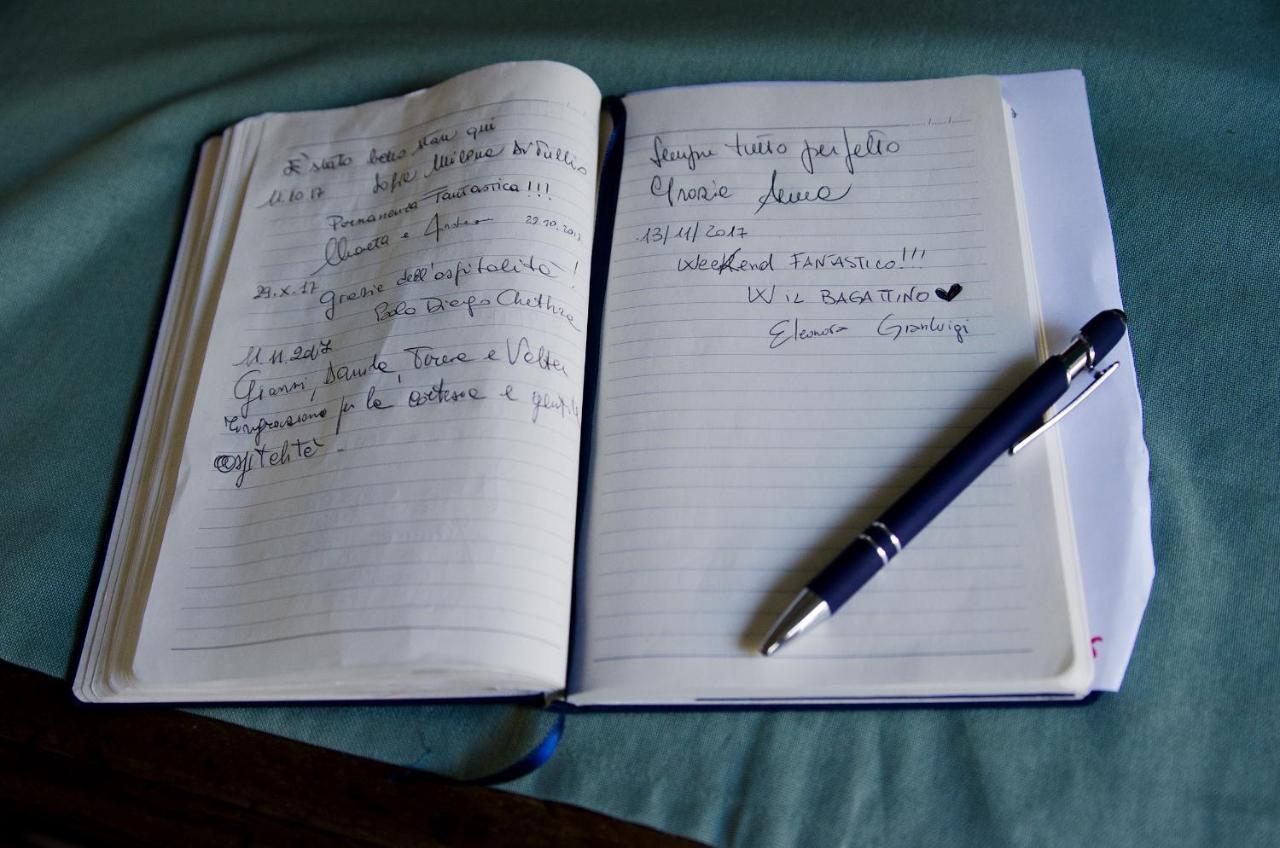 È stato bello stare qui
11.10.17 Sofia Milena Di Tullio
Permanenza Fantastica!!!
e Andrea 29.10.2017
29.X.17 grazie dell'ospitalità!
Paolo Diego
11.11.2017
Gianni, Davide, e Valter
ringraziano per la cortesia e gentile
ospitalità
Sempre tutto perfetto
Grazie Anna
13/11/2017
Weekend FANTASTICO!!!
W IL BAGATTINO ♥
Eleonora Gianluigi